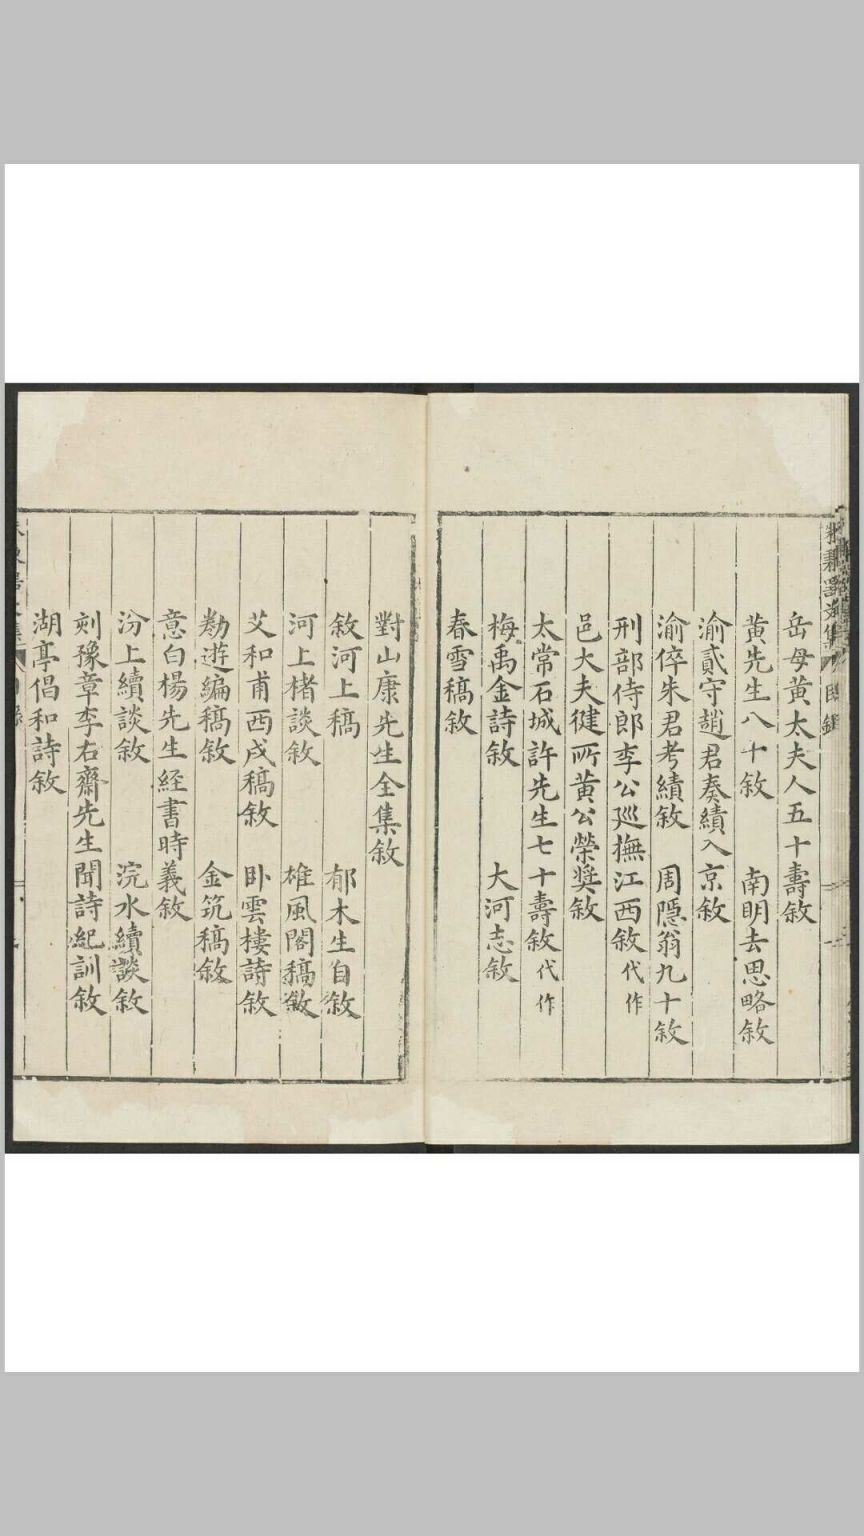 岳母黄太夫人五十壽敘
黄先生八十敘　南明去思略敘
渝貳守趙君奏績入京敘
渝倅朱君考績敘　周隱翁九十敘
刑部侍郎李公廵撫江西敘代作
邑大夫健所黄公榮奬敘
太常石城許先生七十壽敘代作
梅禹金詩敘　大河志敘
春雪稿敘
對山康先生全集敘
敘河上稿　郁木生自敘
河上楮談敘　雄風閣稿敘
艾和甫西戍稿敘　卧雲樓詩敘
勬遊編稿敘　金筑稿敘
意白楊先生経書時義敘
汾上續談敘　浣水續談敘
刻豫章李右齋先生聞詩紀訓敘
湖亭倡和詩敘